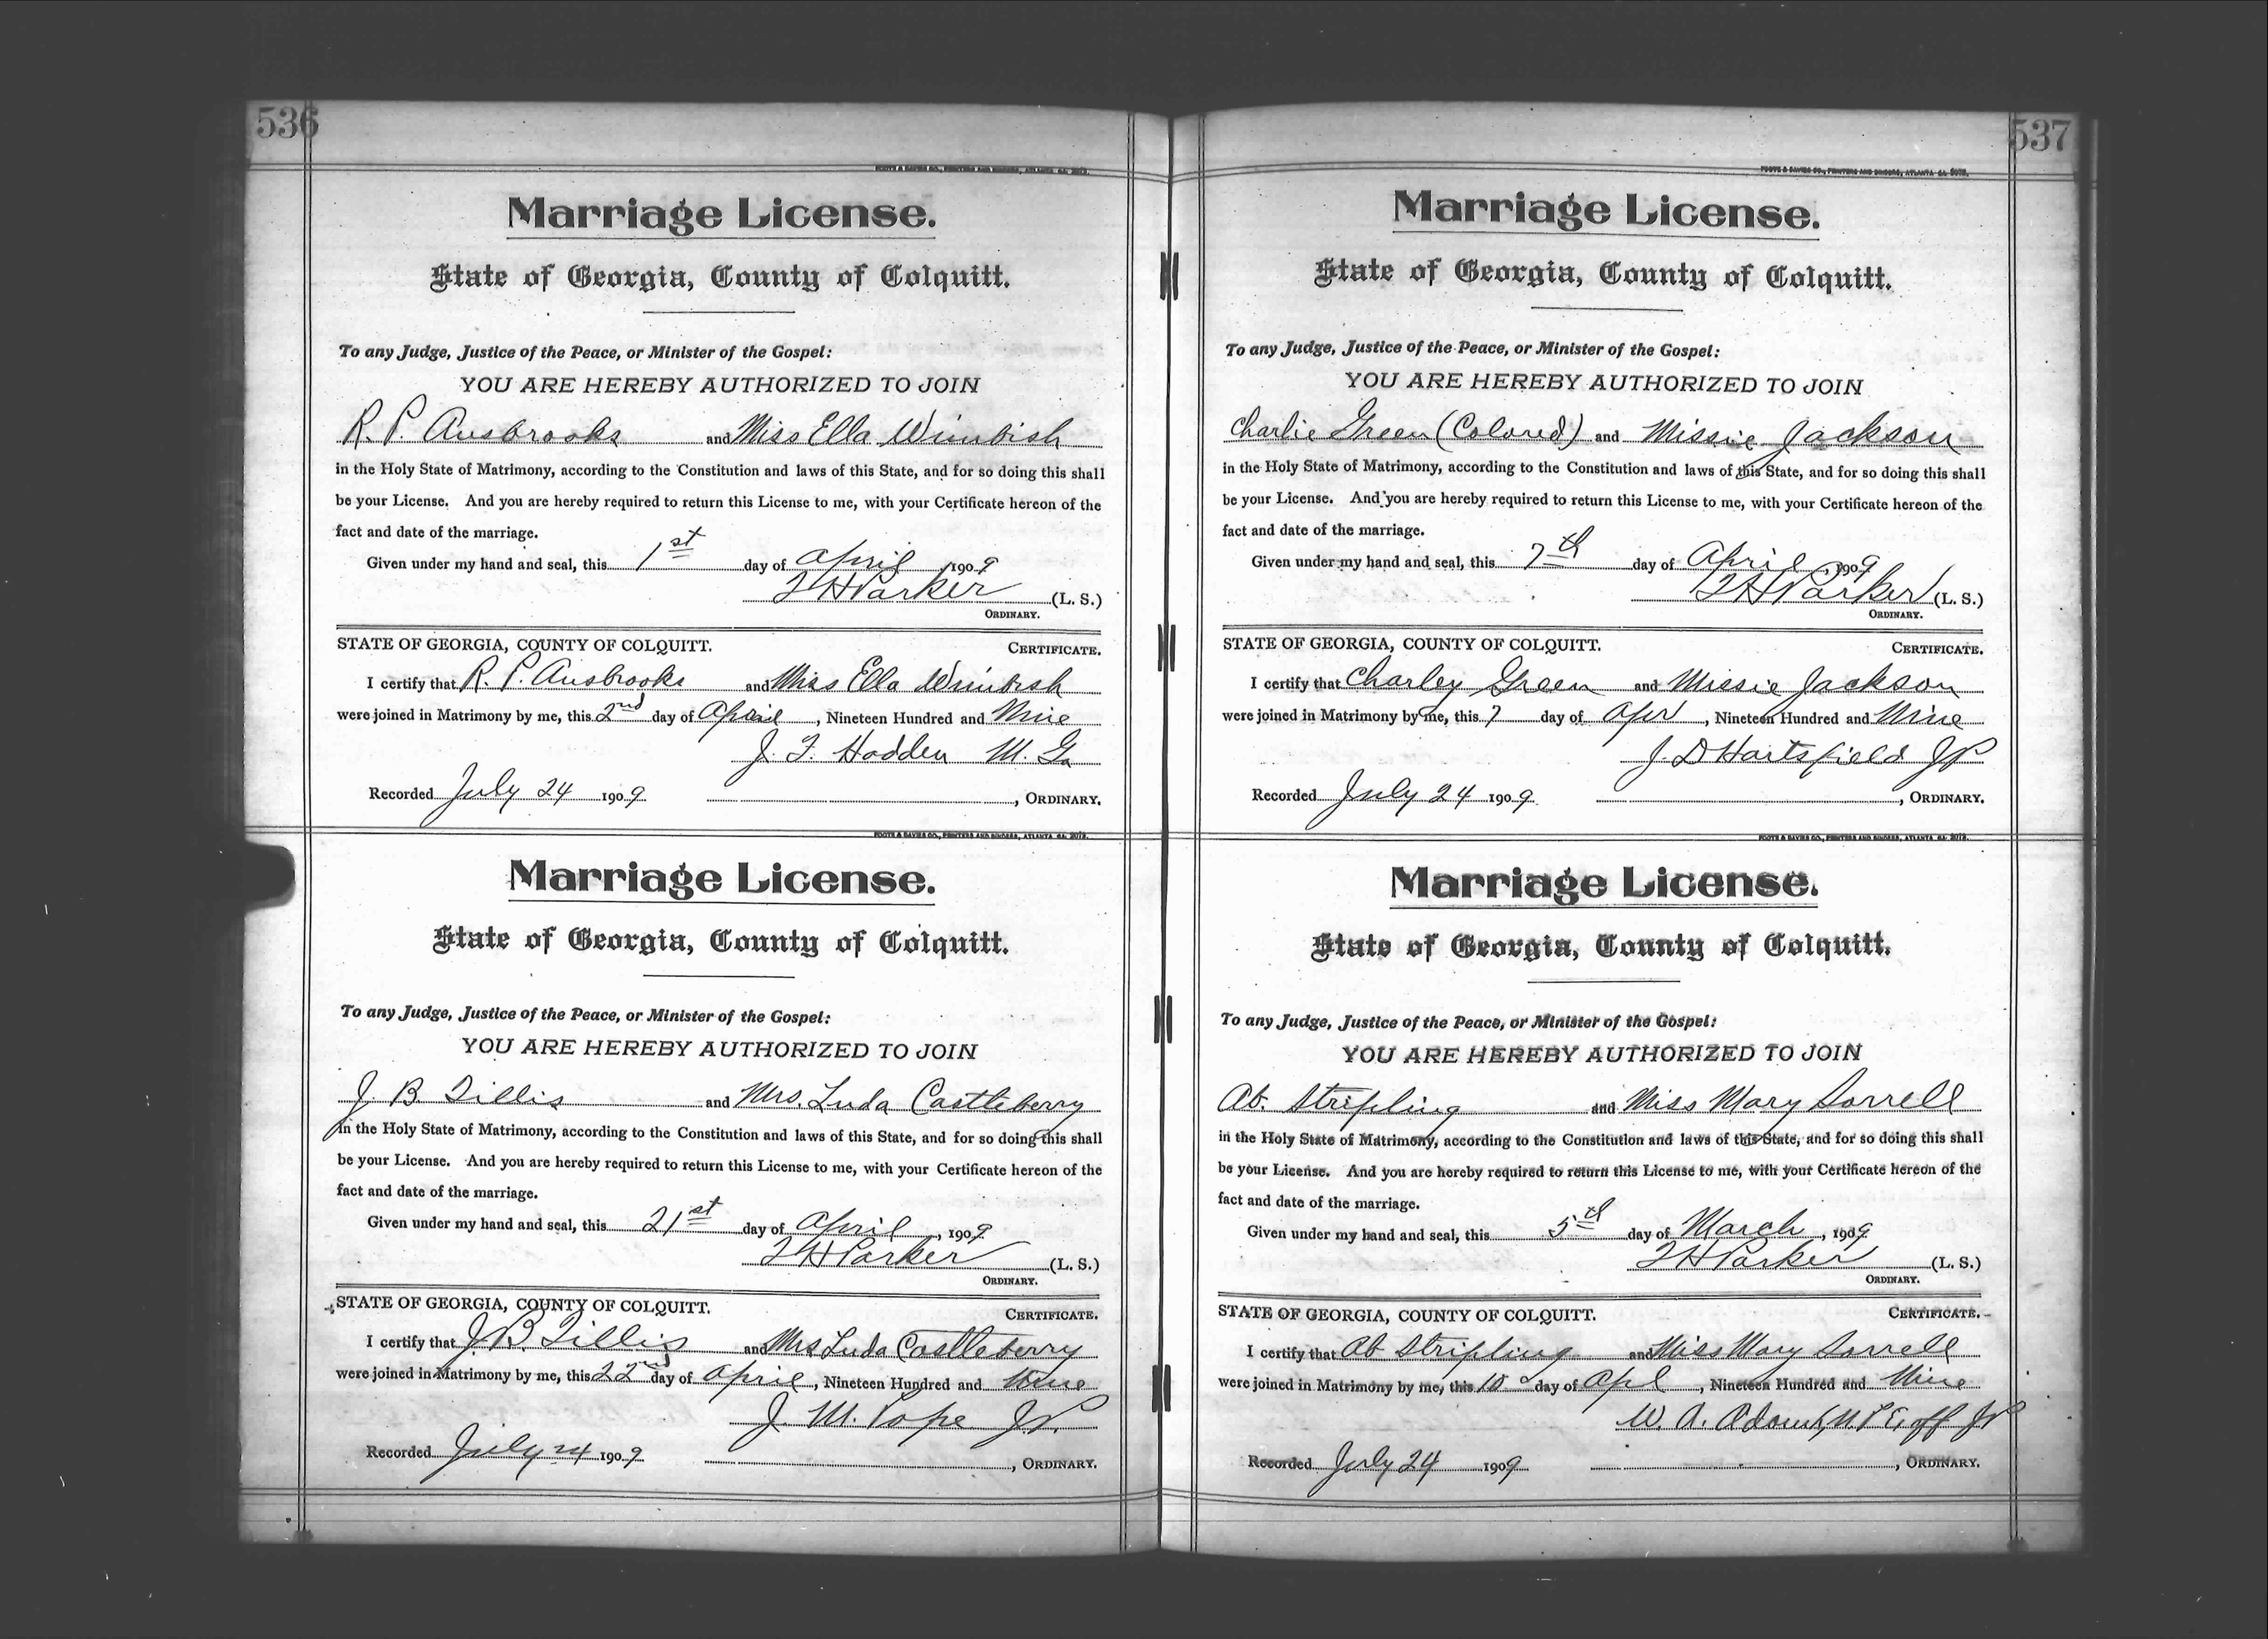 536
FOOTE & DAVIES CO., PRINTERS AND BINDERS, ATLANTA, GA. 2073.
Marriage License.
State of Georgia, County of Colquitt.
To any Judge, Justice of the Peace, or Minister of the Gospel:
YOU ARE HEREBY AUTHORIZED TO JOIN
R. P. Ausbrooks and Miss Ella Wimbish
in the Holy State of Matrimony, according to the Constitution and laws of this State, and for so doing this shall
be your License. And you are hereby required to return this License to me, with your Certificate hereon of the
fact and date of the marriage.
Given under my hand and seal, this 1st day of April, 1909
Parker (L. S.)
ORDINARY.
STATE OF GEORGIA, COUNTY OF COLQUITT. CERTIFICATE.
I certify that R. P. Ausbrooks and Miss Ella Wimbish
were joined in Matrimony by me, this 2nd day of April, Nineteen Hundred and Nine
J. F. Hodden M. G.
Recorded July 24 1909 , ORDINARY.
FOOTE & DAVIES CO., PRINTERS AND BINDERS, ATLANTA, GA. 2073.
Marriage License.
State of Georgia, County of Colquitt.
To any Judge, Justice of the Peace, or Minister of the Gospel:
YOU ARE HEREBY AUTHORIZED TO JOIN
J. B. Tillis and Mrs. Luda Castleberry
in the Holy State of Matrimony, according to the Constitution and laws of this State, and for so doing this shall
be your License. And you are hereby required to return this License to me, with your Certificate hereon of the
fact and date of the marriage.
Given under my hand and seal, this 21st day of April, 1909
Parker (L. S.)
ORDINARY.
STATE OF GEORGIA, COUNTY OF COLQUITT. CERTIFICATE.
I certify that J. B. Tillis and Mrs Luda Castleberry
were joined in Matrimony by me, this 22nd day of April, Nineteen Hundred and Nine
J. M. Pope J.P.
Recorded July 24 1909 , ORDINARY.
537
FOOTE & DAVIES CO., PRINTERS AND BINDERS, ATLANTA, GA. 2073.
Marriage License.
State of Georgia, County of Colquitt.
To any Judge, Justice of the Peace, or Minister of the Gospel:
YOU ARE HEREBY AUTHORIZED TO JOIN
Charlie Green (Colored) and Missie Jackson
in the Holy State of Matrimony, according to the Constitution and laws of this State, and for so doing this shall
be your License. And you are hereby required to return this License to me, with your Certificate hereon of the
fact and date of the marriage.
Given under my hand and seal, this 7th day of April, 1909
Parker (L. S.)
ORDINARY.
STATE OF GEORGIA, COUNTY OF COLQUITT. CERTIFICATE.
I certify that Charley Green and Missie Jackson
were joined in Matrimony by me, this 7 day of Aprl, Nineteen Hundred and Nine
J. D Hartsfield JP
Recorded July 24 1909. , ORDINARY.
FOOTE & DAVIES CO., PRINTERS AND BINDERS, ATLANTA, GA. 2073.
Marriage License.
State of Georgia, County of Colquitt.
To any Judge, Justice of the Peace, or Minister of the Gospel:
YOU ARE HEREBY AUTHORIZED TO JOIN
Ab. Stripling and Miss Mary Sorrell
in the Holy State of Matrimony, according to the Constitution and laws of this State, and for so doing this shall
be your License. And you are hereby required to return this License to me, with your Certificate hereon of the
fact and date of the marriage.
Given under my hand and seal, this 5th day of March, 1909
Parker (L. S.)
ORDINARY.
STATE OF GEORGIA, COUNTY OF COLQUITT. CERTIFICATE.
I certify that Ab Stripling and Miss Mary Sorrell
were joined in Matrimony by me, this 10 day of Apl, Nineteen Hundred and Nine
W. A. off JP
Recorded July 24 1909 , ORDINARY.